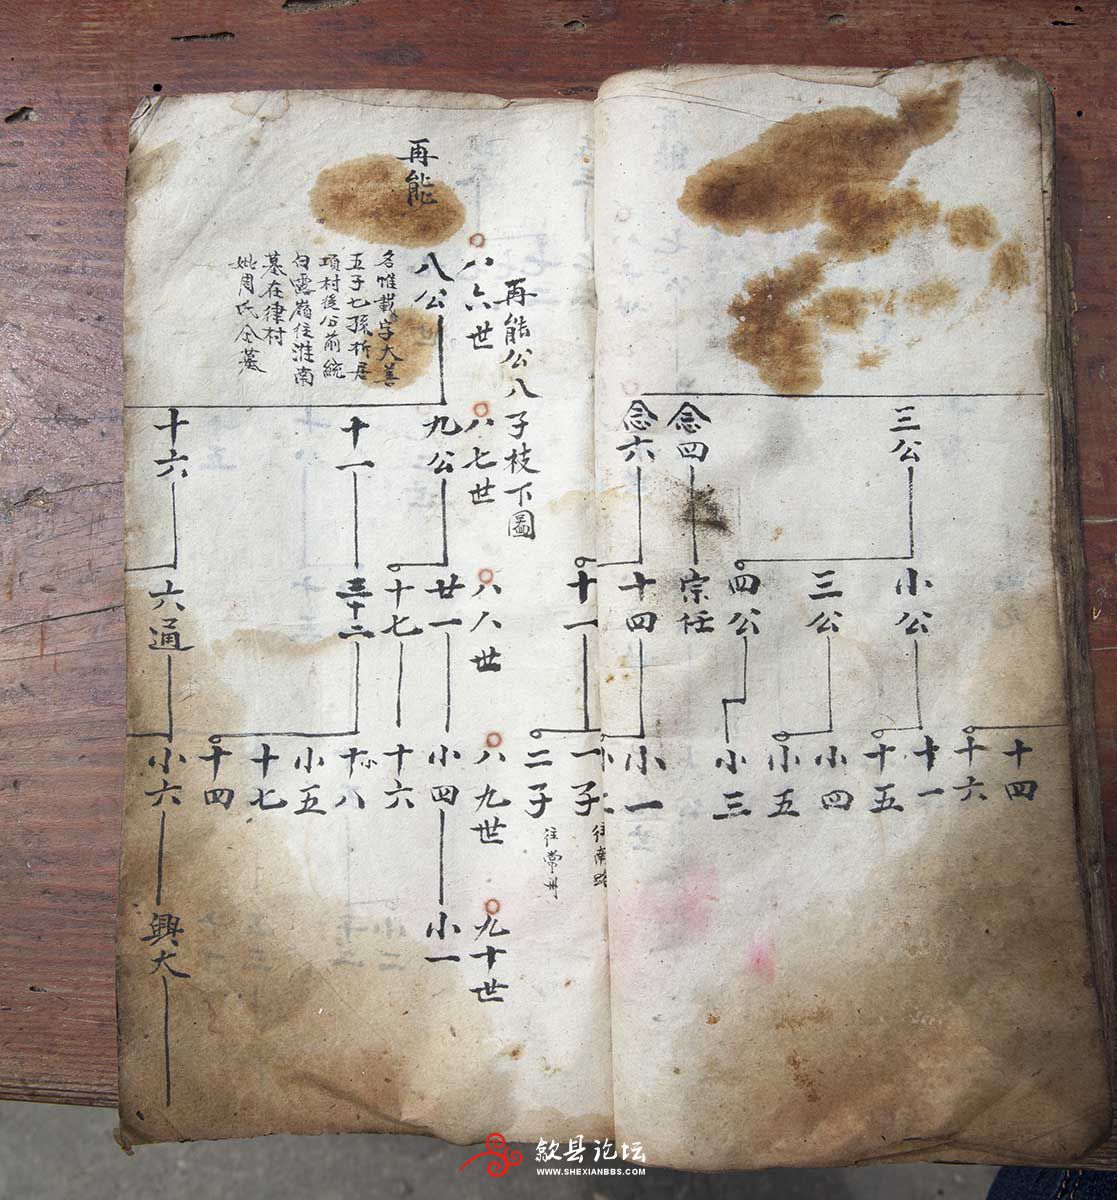 三公
念四
念六
小公
三公
四公
宗任
十四
十一
十四
十六
十一
十五
小四
小五
小三
小一
一子
往南路
二子
往常州
再能公八子枝下圖
八六世
八七世
八八世
八九世
九十世
再能
八公
名惟載字大善
五子七孫析居
項村後公前統
白露嶺往淮南
墓在律村
妣周氏仝墓
九公
十一
十六
廿一
十七
三十二
六通
小四
十六
小十八
小五
十七
十四
小六
小一
興大
歙县论坛
WWW.SHEXIANBBS.COM